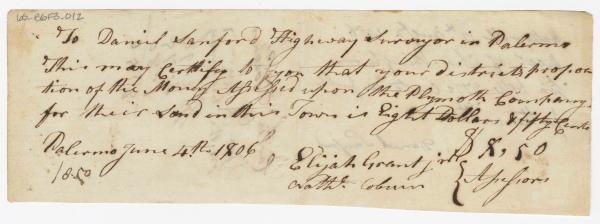 LG-B6F3-012
To Daniel Sanford Highway Surveyor in Palermo
This may Certify to you that your districts propor-
tion of the Money Assessed upon the Plymoth Company
for their Land in this Town is Eight Dollars & fifty Cents
$8,50
Palermo June 4th 1806
Elijah Grant jr
Nathl. Coburn
Assessors
8.50